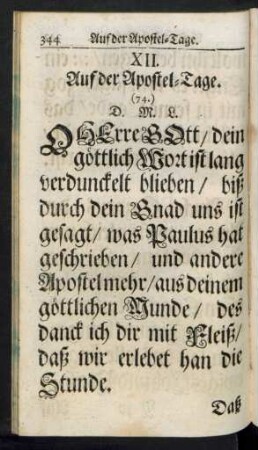 344 Auf der Apostel-Tage.
XII.
Auf der Apostel-Tage.
(74.)
D. M. L.
O HErre GOtt/ dein
göttlich Wort ist lang
verdunckelt blieben/ biß
durch dein Gnad uns ist
gesagt/ was Paulus hat
geschrieben/ und andere
Apostel mehr/ aus deinem
göttlichen Munde/ des
danck ich dir mit Fleiß/
daß wir erlebet han die
Stunde.
Daß